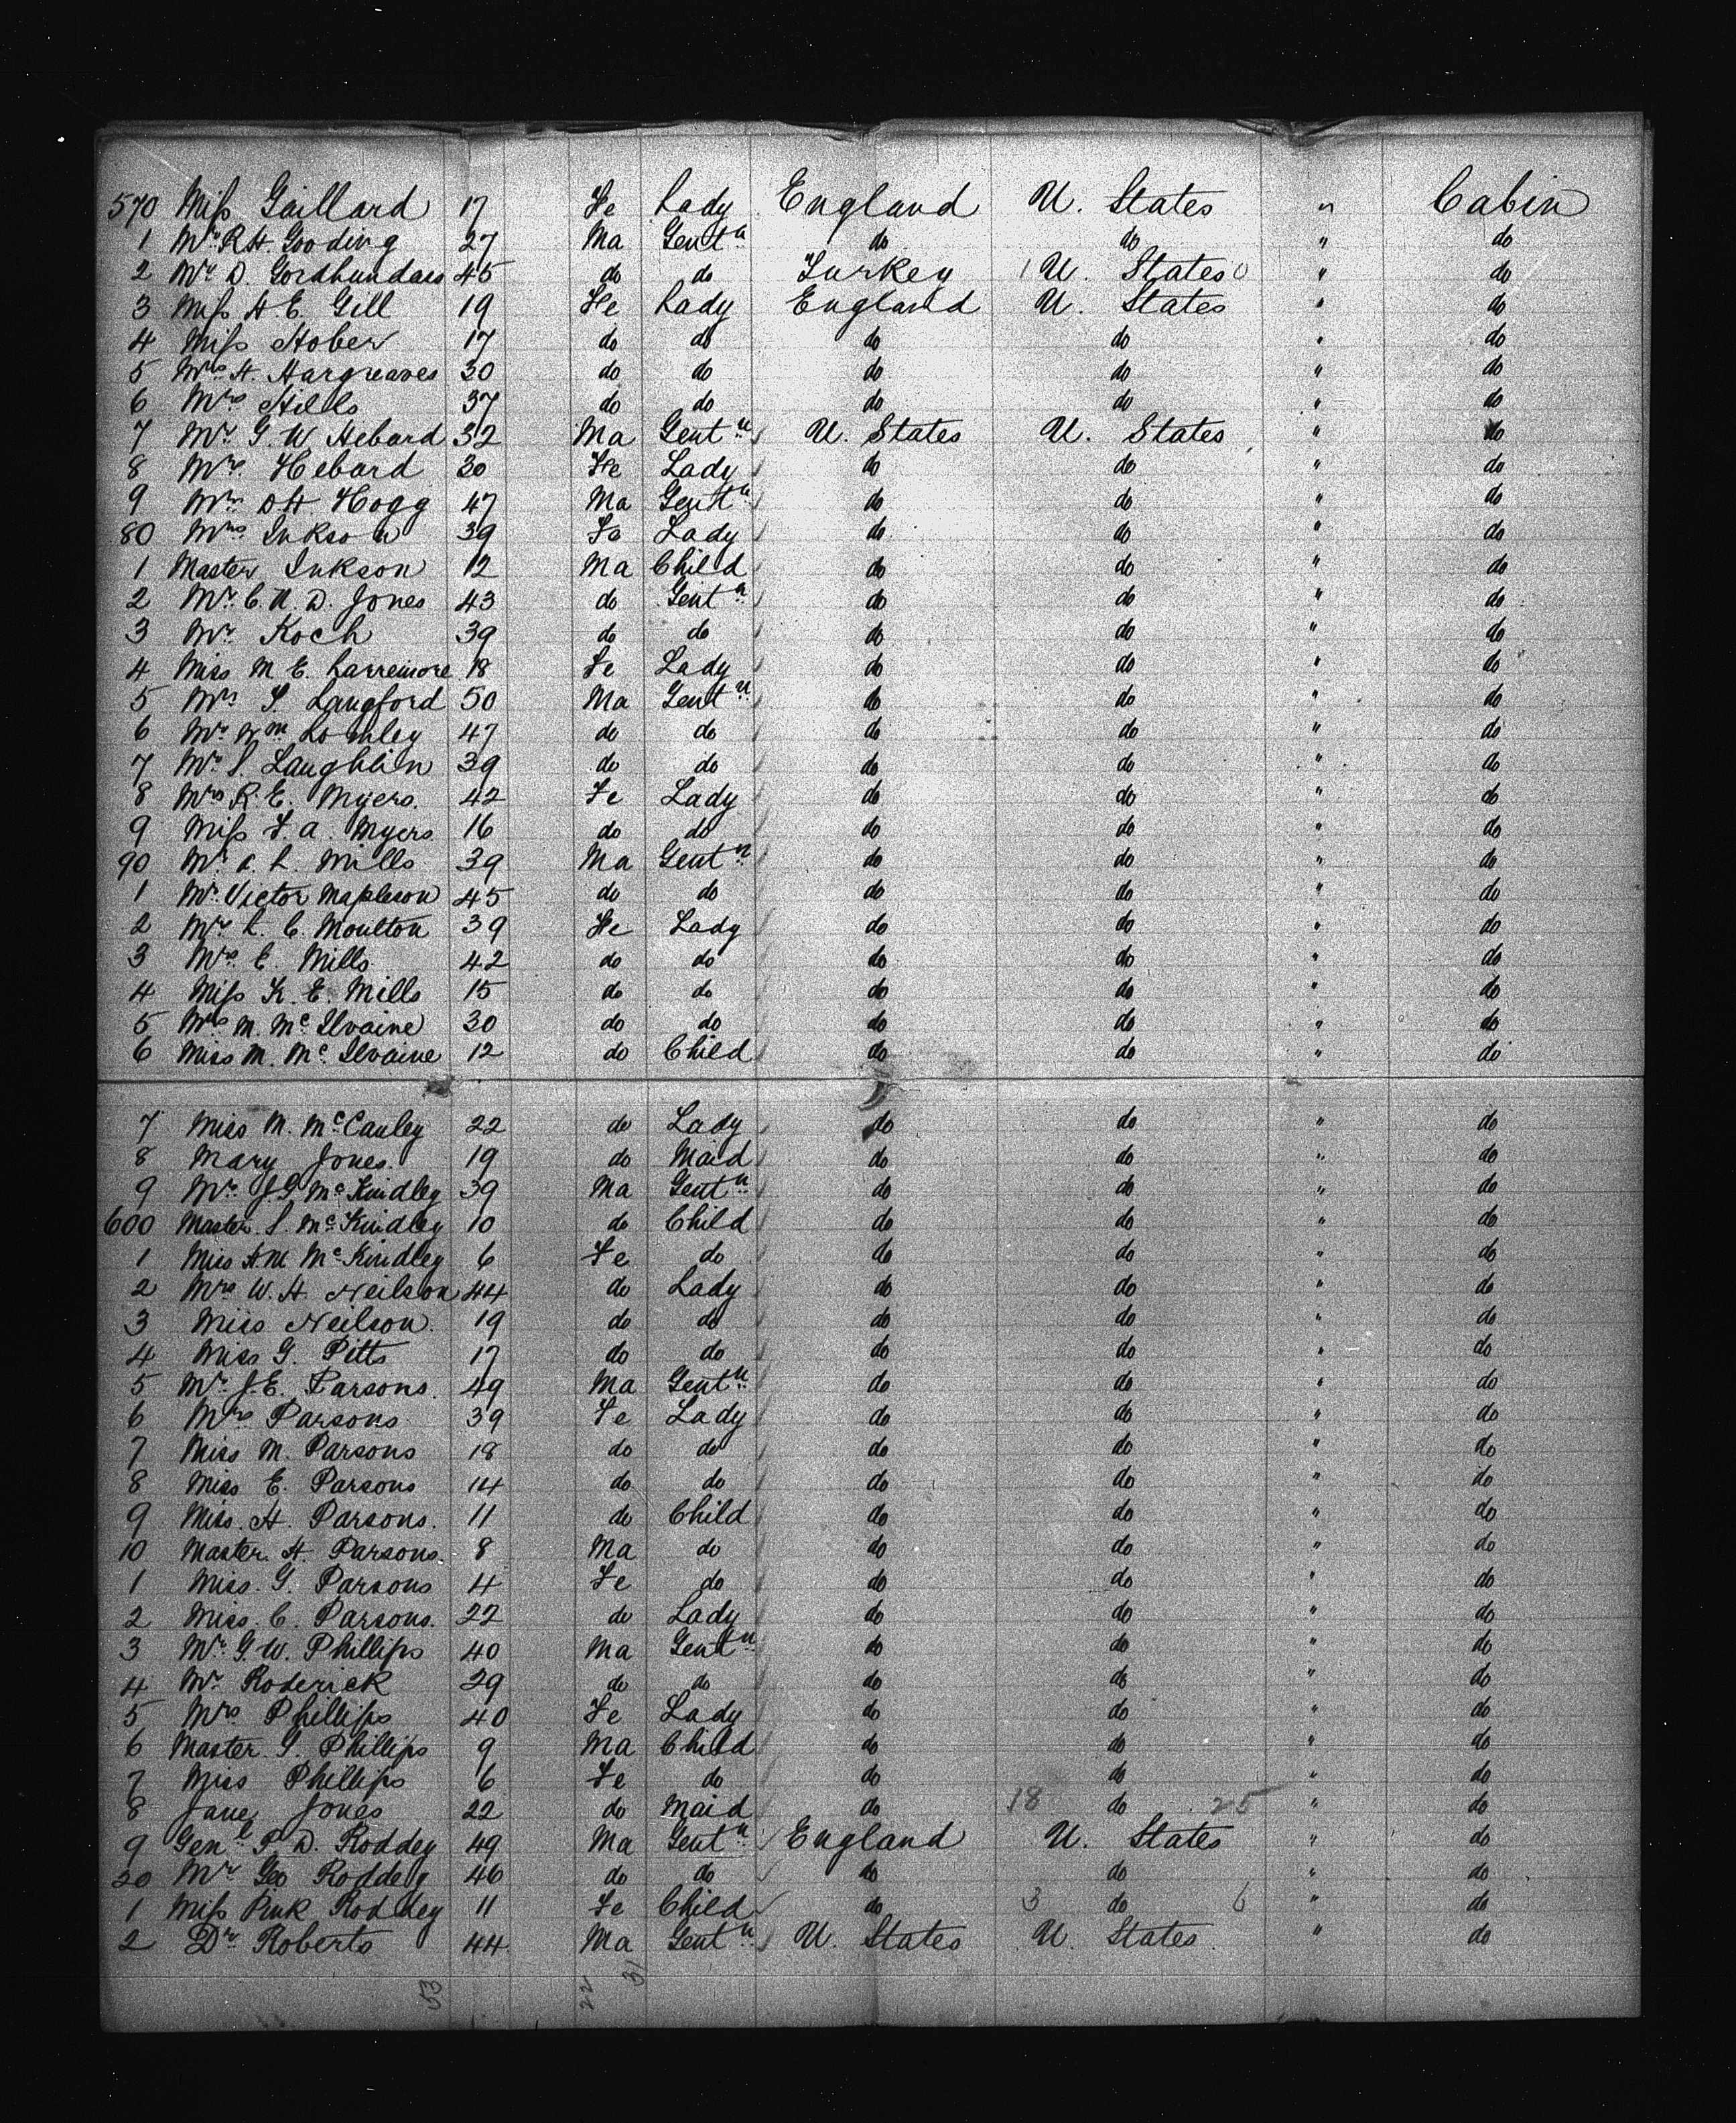 570 Miss Gaillard 17 Fe Lady England U. States " Cabin
1 Mr R H Gooding 27 Ma Gentn do do " do
2 Mr D. Gordhundass 45 do do Turkey 1 U. States 0 " do
3 Miss A. E. Gill 19 Fe Lady England U. States " do
4 Miss Hober 17 do do do do " do
5 Mrs H. Hargreaves 30 do do do do " do
6 Mrs Hills 37 do do do do " do
7 Mr G. W Hebard 32 Ma Gentn U. States U. States " do
8 Mrs Hebard 30 Fe Lady do do " do
9 Mr D H. Hogg 47 Ma Gentn do do " do
80 Mrs Inkson 39 Fe Lady do do " do
1 Master Inkson 12 Ma Child do do " do
2 Mr C. N. D. Jones 43 do Gentn do do " do
3 Mr Koch 39 do do do do " do
4 Miss M E. Larremore 18 Fe Lady do do " do
5 Mr S. Langford 50 Ma Gentn do do " do
6 Mr Wm 47 do do do do " do
7 Mr S. Laughlin 39 do do do do " do
8 Mrs R. E. Myers. 42 Fe Lady do do " do
9 Miss F. A. Myers 16 do do do do " do
90 Mr L. Mills 39 Ma Gentn do do " do
1 Mr Victor Mapleson 45 do do do do " do
2 Mrs L. C. Moulton 39 Fe Lady do do " do
3 Mrs E. Mills 42 do do do do " do
4 Miss K. E. Mills 15 do do do do " do
5 Mrs M. Mc Ilvaine 30 do do do do " do
6 Miss M. Mc Ilvaine 12 do Child do do " do
7 Miss M. McCauley 22 do Lady do do " do
8 Mary Jones. 19 do Maid do do " do
9 Mr J. G. McKindley 39 Ma Gentn do do " do
600 Master S. McKindley 10 do Child do do " do
1 Miss A M McKindley 6 Fe do do do " do
2 Mrs W. H. Neilson 44 do Lady do do " do
3 Miss Neilson. 19 do do do do " do
4 Miss G. Pitts 17 do do do do " do
5 Mr J. E. Parsons. 49 Ma Gentn do do " do
6 Mrs Parsons 39 Fe Lady do do " do
7 Miss M. Parsons 18 do do do do " do
8 Miss E. Parsons 14 do do do do " do
9 Miss. H. Parsons. 11 do Child do do " do
10 Master. H. Parsons. 8 Ma do do do " do
1 Miss. G. Parsons 4 Fe do do do " do
2 Miss. C. Parsons. 22 do Lady do do " do
3 Mr G. W. Phillips 40 Ma Gentn do do " do
4 Mr Roderick 29 do do do do " do
5 Mrs Phillips 40 Fe Lady do do " do
6 Master. G. Phillips 9 Ma Child do do " do
7 Miss Phillips 6 Fe do do do " do
8 Jane Jones 22 do Maid do 18 do 25 " do
9 Genl P. D. Roddey 49 Ma Gentn England U. States " do
20 Mr Geo Roddey 46 do do do do " do
1 Miss Pink Roddey 11 Fe Child do 3 do 6 " do
2 Dr Roberts 44 Ma Gentn U. States U. States " do
53 22 31